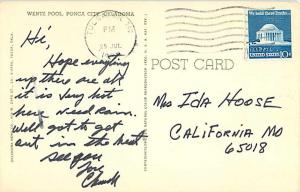 WENTZ POOL, PONCA CITY, OKLAHOMA
PM
25 JUL
We hold these Truths...
10c
POST CARD
Hi,
Hope everything
up there are all
it is very hot
here need rain.
Well got to get
out in the heat
see you
Love
Chuck
Mrs IDA HOOSE
CALIFORNIA MO
65018